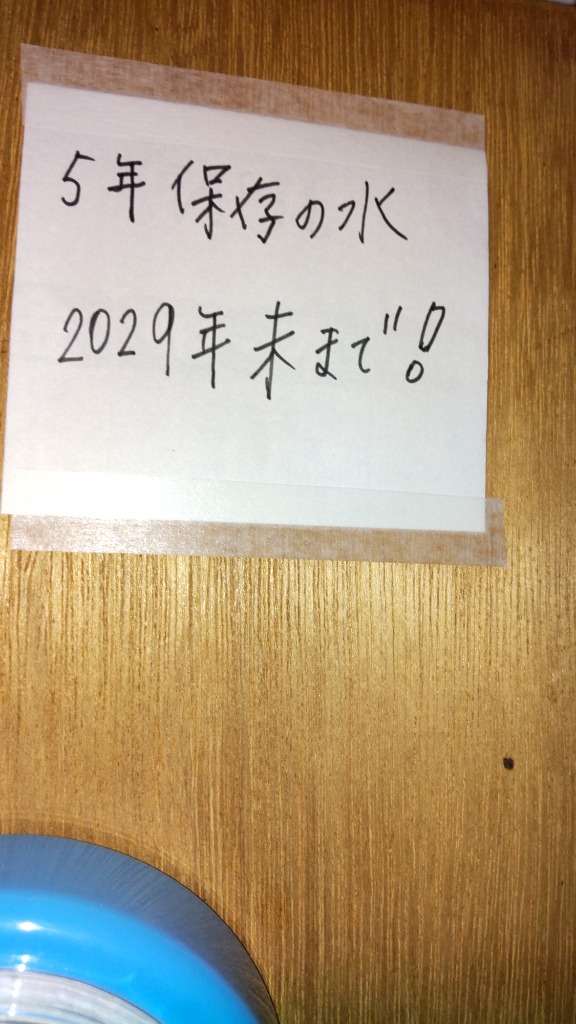 5年保存の水
2029年末まで!